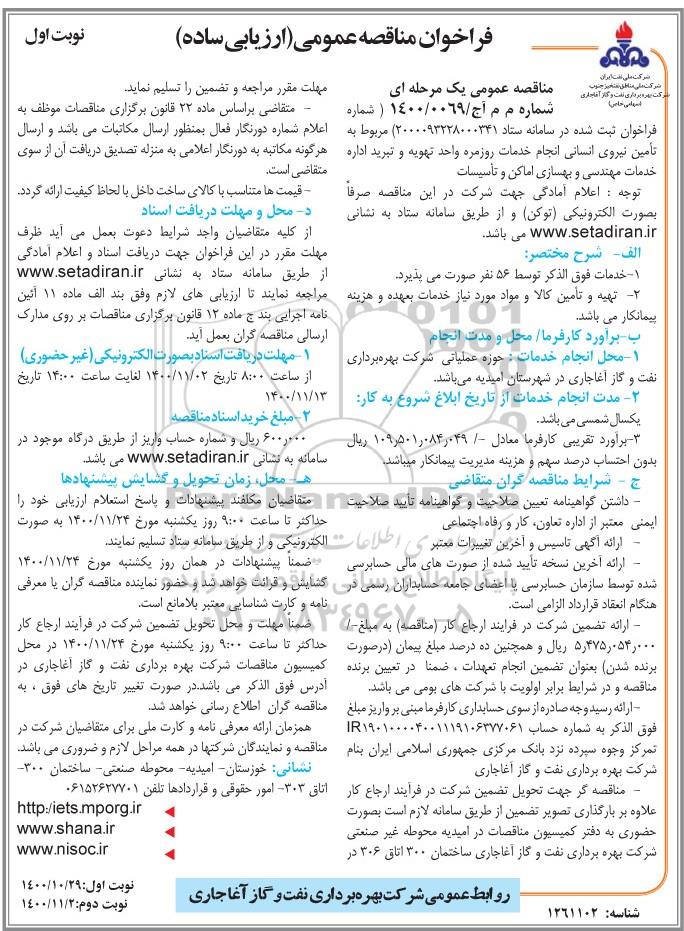 فراخوان مناقصه عمومی (ارزیابی ساده)
نوبت اول
شرکت ملی نفت ایران
شرکت ملی مناطق نفتخیز جنوب
شرکت بهره برداری نفت و گاز آغاجاری
(سهامی خاص)
مناقصه عمومی یک مرحله ای
شماره م م آج/۱۴۰۰/۰۰۶۹ ( شماره
فراخوان ثبت شده در سامانه ستاد ۲۰۰۰۰۹۳۲۲۸۰۰۰۳۴۱) مربوط به
تأمین نیروی انسانی انجام خدمات روزمره واحد تهویه و تبرید اداره
خدمات مهندسی و بهسازی اماکن و تأسیسات
توجه : اعلام آمادگی جهت شرکت در این مناقصه صرفاً
بصورت الکترونیکی (توکن) و از طریق سامانه ستاد به نشانی
www.setadiran.ir می باشد.
الف- شرح مختصر:
۱-خدمات فوق الذکر توسط ۵۶ نفر صورت می پذیرد.
۲- تهیه و تأمین کالا و مواد مورد نیاز خدمات بعهده و هزینه
پیمانکار می باشد.
ب-برآورد کارفرما/ محل و مدت انجام
۱-محل انجام خدمات : حوزه عملیاتی شرکت بهره‌برداری
نفت و گاز آغاجاری در شهرستان امیدیه می‌باشد.
۲- مدت انجام خدمات از تاریخ ابلاغ شروع به کار:
یکسال شمسی می‌باشد.
۳-برآورد تقریبی کارفرما معادل -/ ۱۰۹,۵۰۱,۰۸۴,۰۴۹ ریال
بدون احتساب درصد سهم و هزینه مدیریت پیمانکار میباشد.
ج - شرایط مناقصه گران متقاضی
- داشتن گواهینامه تعیین صلاحیت و گواهینامه تأیید صلاحیت
ایمنی معتبر از اداره تعاون، کار و رفاه اجتماعی
- ارائه آگهی تاسیس و آخرین تغییرات معتبر
- ارائه آخرین نسخه تأیید شده از صورت های مالی حسابرسی
شده توسط سازمان حسابرسی یا اعضای جامعه حسابداران رسمی در
هنگام انعقاد قرارداد الزامی است.
- ارائه تضمین شرکت در فرایند ارجاع کار (مناقصه) به مبلغ-/
۵,۴۷۵,۰۵۴,۰۰۰ ریال و همچنین ده درصد مبلغ پیمان (درصورت
برنده شدن) بعنوان تضمین انجام تعهدات ، ضمنا در تعیین برنده
مناقصه و در شرایط برابر اولویت با شرکت های بومی می باشد.
-ارائه رسید وجه صادره از سوی حسابداری کارفرما مبنی بر واریز مبلغ
فوق الذکر به شماره حساب IR۱۹۰۱۰۰۰۰۴۰۰۱۱۱۹۱۰۶۳۷۷۰۶۱
تمرکز وجوه سپرده نزد بانک مرکزی جمهوری اسلامی ایران بنام
شرکت بهره برداری نفت و گاز آغاجاری
- مناقصه گر جهت تحویل تضمین شرکت در فرآیند ارجاع کار
علاوه بر بارگذاری تصویر تضمین از طریق سامانه لازم است بصورت
حضوری به دفتر کمیسیون مناقصات در امیدیه محوطه غیر صنعتی
شرکت بهره برداری نفت و گاز آغاجاری ساختمان ۳۰۰ اتاق ۳۰۶ در
مهلت مقرر مراجعه و تضمین را تسلیم نماید.
- متقاضی براساس ماده ۲۲ قانون برگزاری مناقصات موظف به
اعلام شماره دورنگار فعال بمنظور ارسال مکاتبات می باشد و ارسال
هرگونه مکاتبه به دورنگار اعلامی به منزله تصدیق دریافت آن از سوی
متقاضی است.
- قیمت ها متناسب با کالای ساخت داخل با لحاظ کیفیت ارائه گردد.
د- محل و مهلت دریافت اسناد
از کلیه متقاضیان واجد شرایط دعوت بعمل می آید ظرف
مهلت مقرر در این فراخوان جهت دریافت اسناد و اعلام آمادگی
از طریق سامانه ستاد به نشانی www.setadiran.ir
مراجعه نمایند تا ارزیابی های لازم وفق بند الف ماده ۱۱ آئین
نامه اجرایی بند ج ماده ۱۲ قانون برگزاری مناقصات بر روی مدارک
ارسالی مناقصه گران بعمل آید.
۱-مهلت دریافت اسناد بصورت الکترونیکی (غیر حضوری)
از ساعت ۸:۰۰ تاریخ ۱۴۰۰/۱۱/۰۲ لغایت ساعت ۱۴:۰۰ تاریخ
۱۴۰۰/۱۱/۱۳
۲-مبلغ خرید اسناد مناقصه
۶۰۰,۰۰۰ ریال و شماره حساب واریز از طریق درگاه موجود در
سامانه به نشانی www.setadiran.ir می باشد.
هـ- محل، زمان تحویل و گشایش پیشنهادها
متقاضیان مکلفند پیشنهادات و پاسخ استعلام ارزیابی خود را
حداکثر تا ساعت ۹:۰۰ روز یکشنبه مورخ ۱۴۰۰/۱۱/۲۴ به صورت
الکترونیکی و از طریق سامانه ستاد تسلیم نمایند.
ضمناً پیشنهادات در همان روز یکشنبه مورخ ۱۴۰۰/۱۱/۲۴
گشایش و قرائت خواهد شد و حضور نماینده مناقصه گران با معرفی
نامه و کارت شناسایی معتبر بلامانع است.
ضمناً مهلت و محل تحویل تضمین شرکت در فرآیند ارجاع کار
حداکثر تا ساعت ۹:۰۰ روز یکشنبه مورخ ۱۴۰۰/۱۱/۲۴ در محل
کمیسیون مناقصات شرکت بهره برداری نفت و گاز آغاجاری در
آدرس فوق الذکر می باشد.در صورت تغییر تاریخ های فوق ، به
مناقصه گران اطلاع رسانی خواهد شد.
همزمان ارائه معرفی نامه و کارت ملی برای متقاضیان شرکت در
مناقصه و نمایندگان شرکتها در همه مراحل لازم و ضروری می باشد.
نشانی: خوزستان- امیدیه- محوطه صنعتی- ساختمان ۳۰۰-
اتاق ۳۰۳- امور حقوقی و قراردادها تلفن ۰۶۱۵۲۶۲۷۷۰۱
http:/iets.mporg.ir
www.shana.ir
www.nisoc.ir
نوبت اول:۱۴۰۰/۱۰/۲۹
نوبت دوم:۱۴۰۰/۱۱/۲
روابط عمومی شرکت بهره برداری نفت و گاز آغاجاری
شناسه: ۱۲۶۱۱۰۲